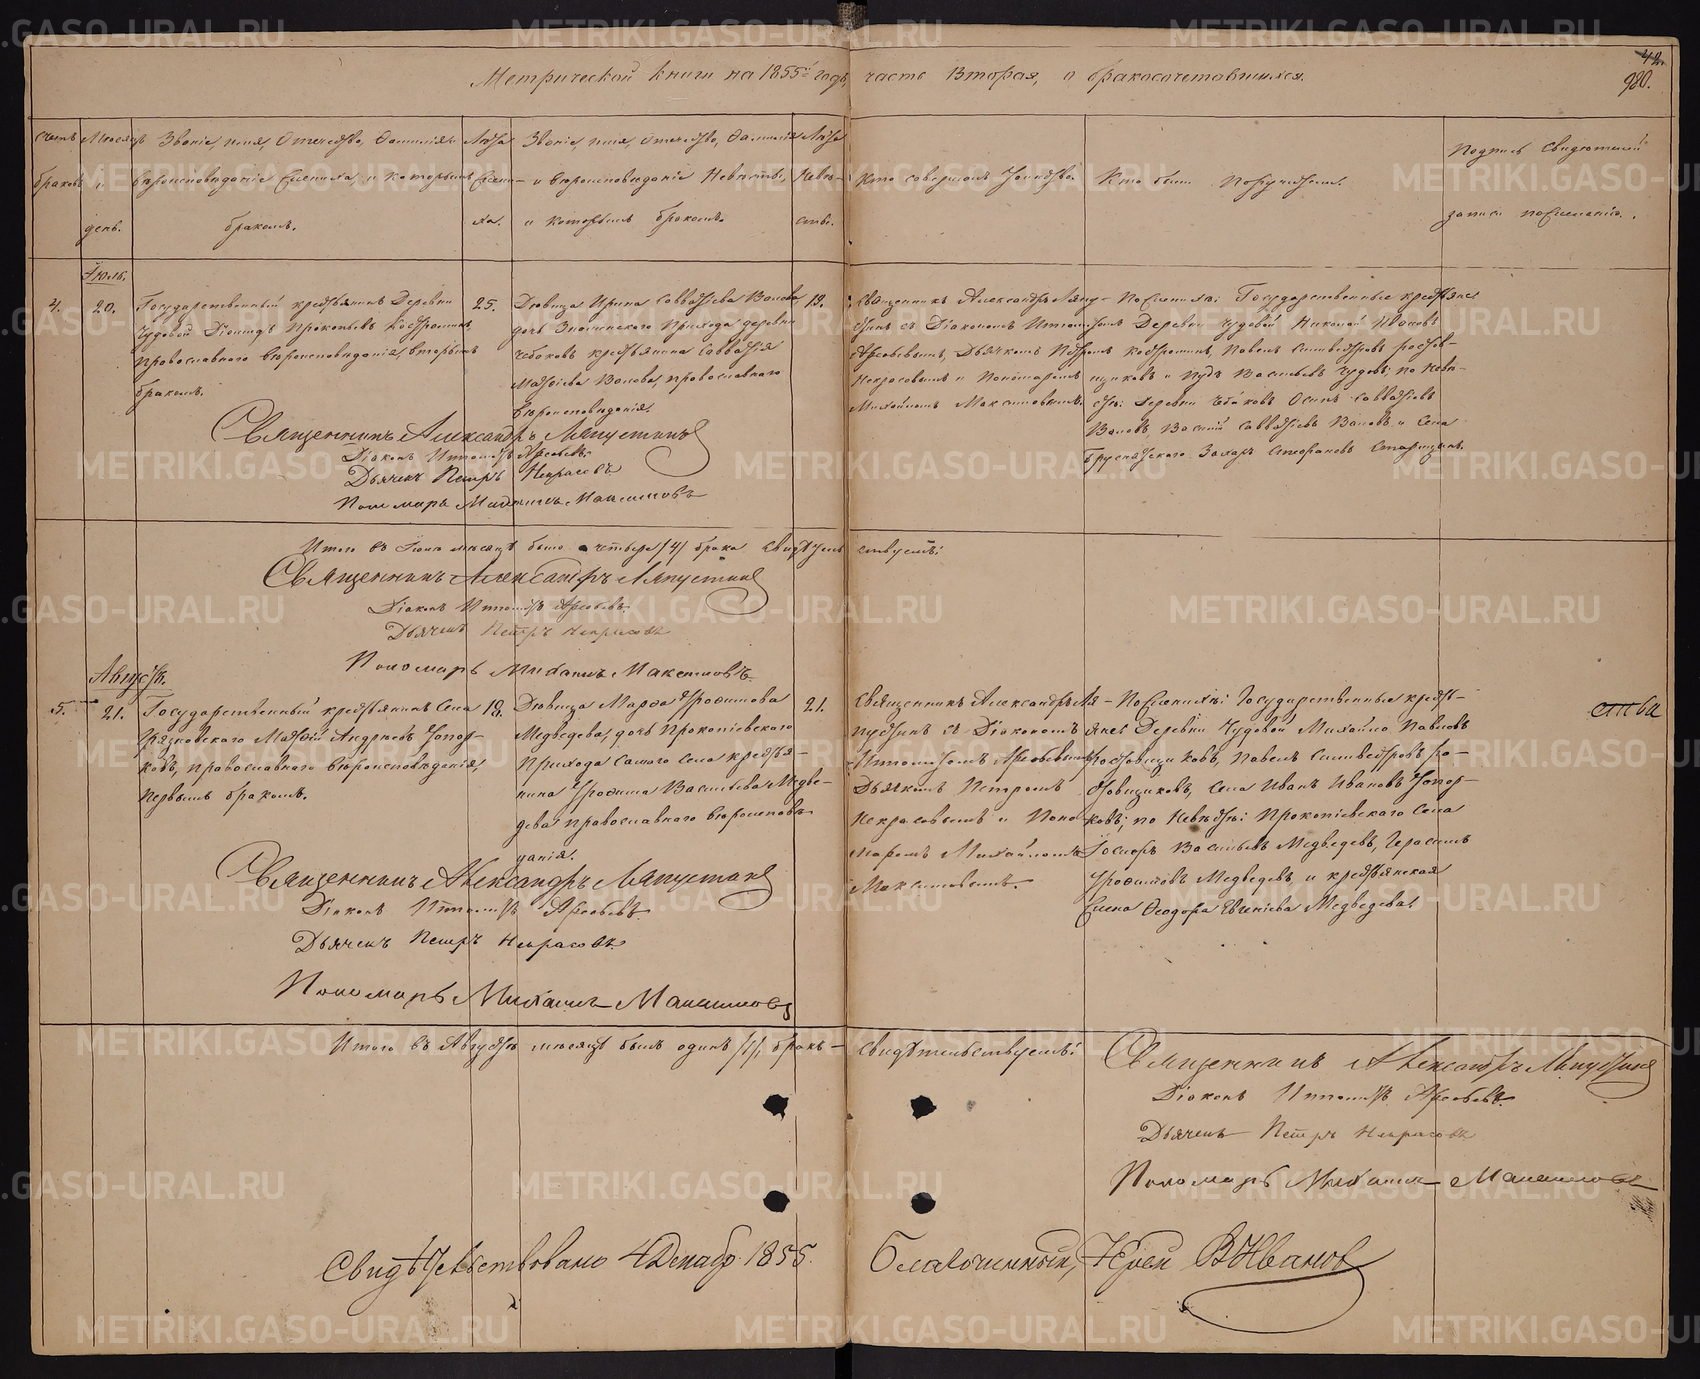 Метрической книги на 1855й годъ, часть Вторая, о бракосочетавшихся.
42.
980.
Счетъ
браковъ
Мѣсяцъ
и
день.
Званіе, имя, Отчество, Фамилія и
вѣроисповѣданіе Жениха, и которымъ
бракомъ.
Лѣта
Жени-
ха.
Званіе, имя, Отчество, Фамилія
и вѣроисповѣданіе Невѣсты,
и которымъ бракомъ.
Лѣта
Невѣ-
сты.
Кто совершалъ Таинство
Кто были Поручители.
Подпись Свидѣтелей
записи по желанію.
Іюль.
4.
20.
Государственный крестьянинъ Деревни
Чудовой Діомидъ Прокопьевъ Костроминъ,
Православнаго Вѣроисповѣданія, вторымъ
бракомъ.
25.
Дѣвица Ирина Савватіева Валова
дочь Знаменскаго Прихода деревни
Чебаковъ крестьянина Савватія
Матѳіева Валова, православнаго
вѣроисповѣданія.
19.
Священникъ Александръ Ляпу-
стинъ съ Діакономъ Ипполитомъ
Арсеньевымъ, Дьячкомъ Петромъ
Некрасовымъ и Пономаремъ
Михайломъ Максимовымъ.
По Женихѣ: Государственные крестьяне
Деревни Чудовой Николай Ивановъ
Костроминъ, Павелъ Сильвестровъ Ростов-
щиковъ и Пудъ Васильевъ Чудовъ; по Невѣ-
стѣ: деревни Чебаковъ Осипъ Савватіевъ
Валовъ Василій Савватіевъ Валовъ и Села
Бруснятскаго Захаръ Старицынъ.
Священникъ Александръ Ляпустинъ
Діаконъ Ипполитъ Арсеньевъ
Дьячекъ Петръ Некрасовъ
Пономарь Михаилъ Максимовъ
Итого въ Іюлѣ мѣсяцѣ было четыре /4/ брака Свидѣтельствуемъ:
Священникъ Александръ Ляпустинъ
Діаконъ Ипполитъ Арсеньевъ
Дьячекъ Петръ Некрасовъ
Пономарь Михаилъ Максимовъ
Августъ.
5.
21.
Государственный крестьянинъ Села
Грязновскаго Матѳей Андреевъ Топор-
ковъ, православнаго вѣроисповѣданія,
Первымъ бракомъ.
18.
Дѣвица Марѳа Трофимова
Медвѣдева, дочь Прокопіевскаго
Прихода самого Села крестья-
нина Трофима Васильева Медвѣ-
дева православнаго вѣроисповѣ-
данія.
21.
Священникъ Александръ Ля-
пустинъ съ Діакономъ
Ипполитомъ Арсеньевымъ
Дьячкомъ Петромъ
Некрасовымъ и Поно
маремъ Михайломъ
Максимовымъ.
По Женихѣ: Государственные кресть-
яне Деревни Чудовой Михайло Павловъ
Ростовщиковъ, Павелъ Сильвестровъ Ро-
стовщиковъ, Села Иванъ Ивановъ Топор-
ковъ; по Невѣстѣ: Прокопіевскаго Села
Васильевъ Медвѣдевъ, Герасимъ
Трофимовъ Медвѣдевъ и крестьянская
Жена Ѳеодора Евгеніева Медвѣдева.
ства
Священникъ Александръ Ляпустинъ
Діаконъ Ипполитъ Арсеньевъ
Дьячекъ Петръ Некрасовъ
Пономарь Михаилъ Максимовъ
Итого въ Августѣ мѣсяцѣ былъ одинъ /1/ бракъ - Свидѣтельствуемъ:
Священникъ Александръ Ляпустинъ
Діаконъ Ипполитъ Арсеньевъ
Дьячекъ Петръ Некрасовъ
Пономарь Михаилъ Максимовъ
Свидѣтельствовано 4 Декабр. 1855. Благочинный, Іерей В Ивановъ
METRIKI.GASO-URAL.RU